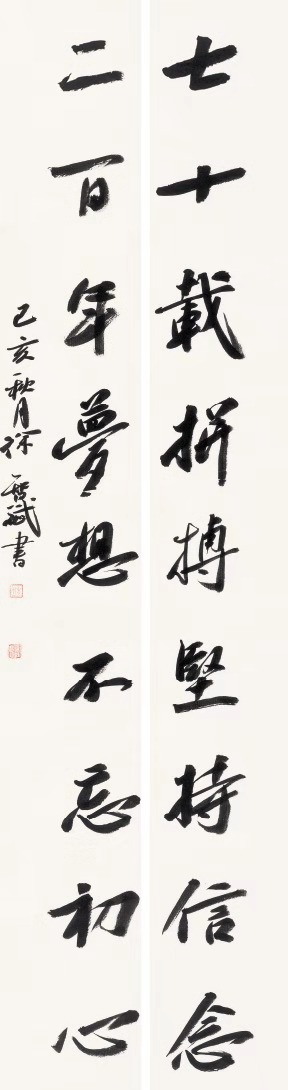 七十載拼搏堅持信念
二百年夢想不忘初心
己亥秋月徐斌書